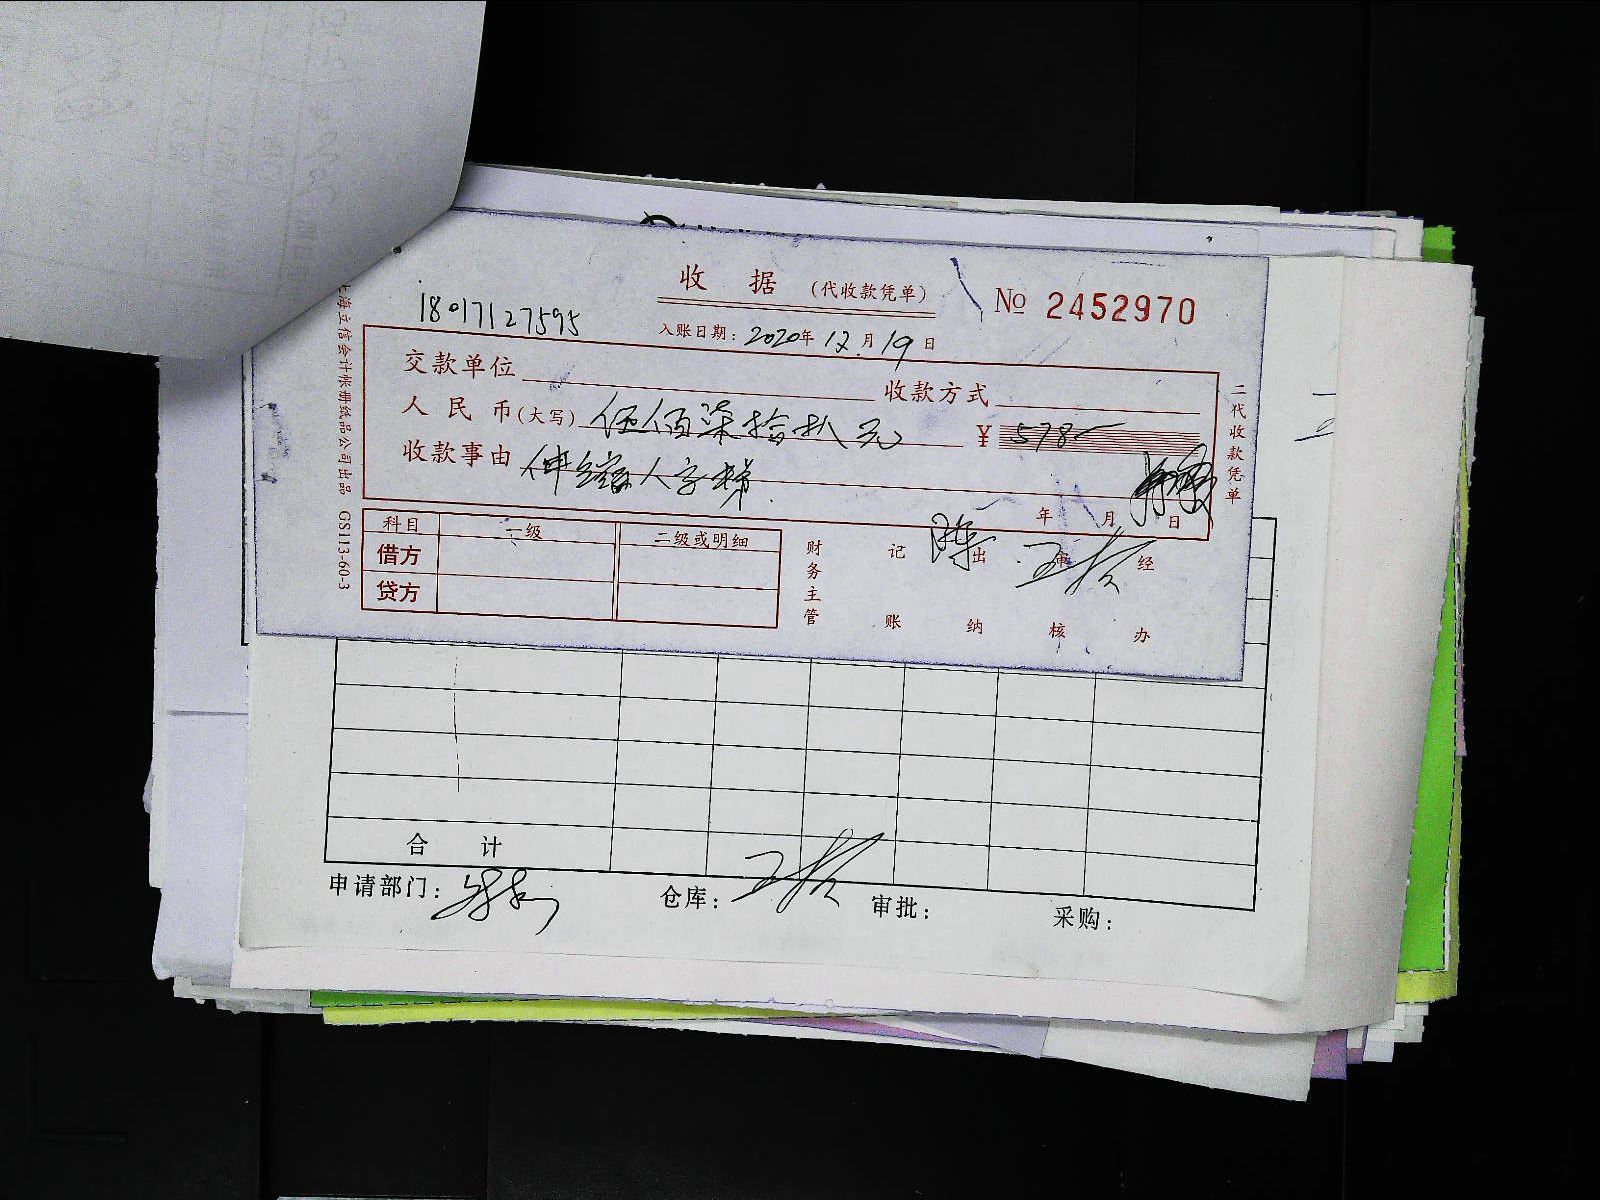 收 据 (代收款凭单) № 2452970
18017127595
入账日期: 2020年 12月 19日
交款单位 收款方式
人民币(大写) 伍佰柒拾扒元 ¥ 578-
收款事由 伸缩人字梯
年 月 日
科目 一级 二级或明细
借方
贷方
财务主管 记账 出纳 审核 经办
二代收款凭单
上海立信会计帐册纸品公司出品 GS113-60-3
合 计
申请部门: 仓库: 审批: 采购: